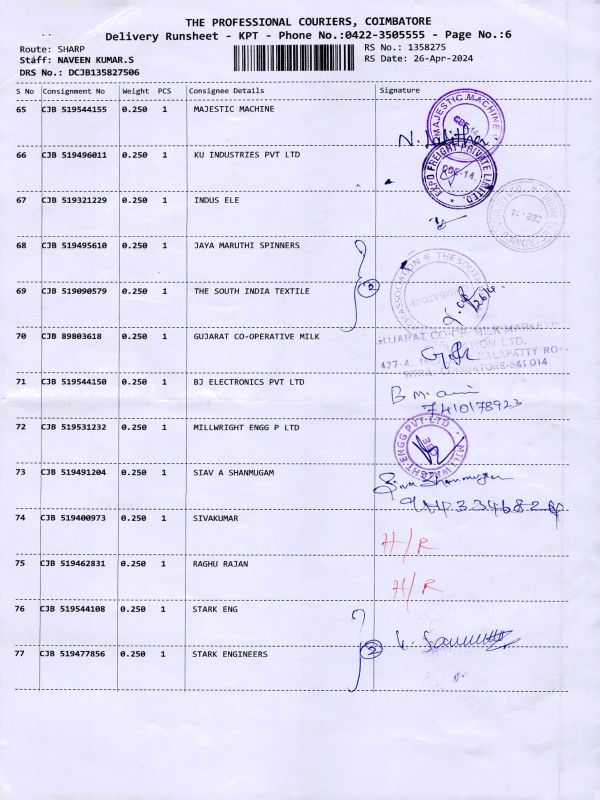 THE PROFESSIONAL COURIERS, COIMBATORE
Delivery Runsheet - KPT - Phone No.:0422-3505555 - Page No.:6
Route: SHARP
RS No.: 1358275
Staff: NAVEEN KUMAR.S
RS Date: 26-Apr-2024
DRS No.: DCJB135827506
S No Consignment No Weight PCS Consignee Details Signature
65 CJB 519544155 0.250 1 MAJESTIC MACHINE
MAJESTIC MACHINE
CBE-14
N. Lalitha
66 CJB 519496011 0.250 1 KU INDUSTRIES PVT LTD
EXPO FREIGHT PRIVATE LIMITED
CBE-14.
67 CJB 519321229 0.250 1 INDUS ELE
CBE - 14
68 CJB 519495610 0.250 1 JAYA MARUTHI SPINNERS
2
ASSOCIATION * THE SOUTH
69 CJB 519090579 0.250 1 THE SOUTH INDIA TEXTILE
26/4
70 CJB 89803618 0.250 1 GUJARAT CO-OPERATIVE MILK
GUJARAT CO-OP. MILK MARKETING
LTD.
427-A,
COIMBATORE-641 014
71 CJB 519544150 0.250 1 BJ ELECTRONICS PVT LTD
7410178923
72 CJB 519531232 0.250 1 MILLWRIGHT ENGG P LTD
MILLWRIGHT ENGG PVT LTD
CBE
73 CJB 519491204 0.250 1 SIAV A SHANMUGAM
Siva Shanmugam
74 CJB 519400973 0.250 1 SIVAKUMAR
H/R
75 CJB 519462831 0.250 1 RAGHU RAJAN
H/R
76 CJB 519544108 0.250 1 STARK ENG
2
77 CJB 519477856 0.250 1 STARK ENGINEERS